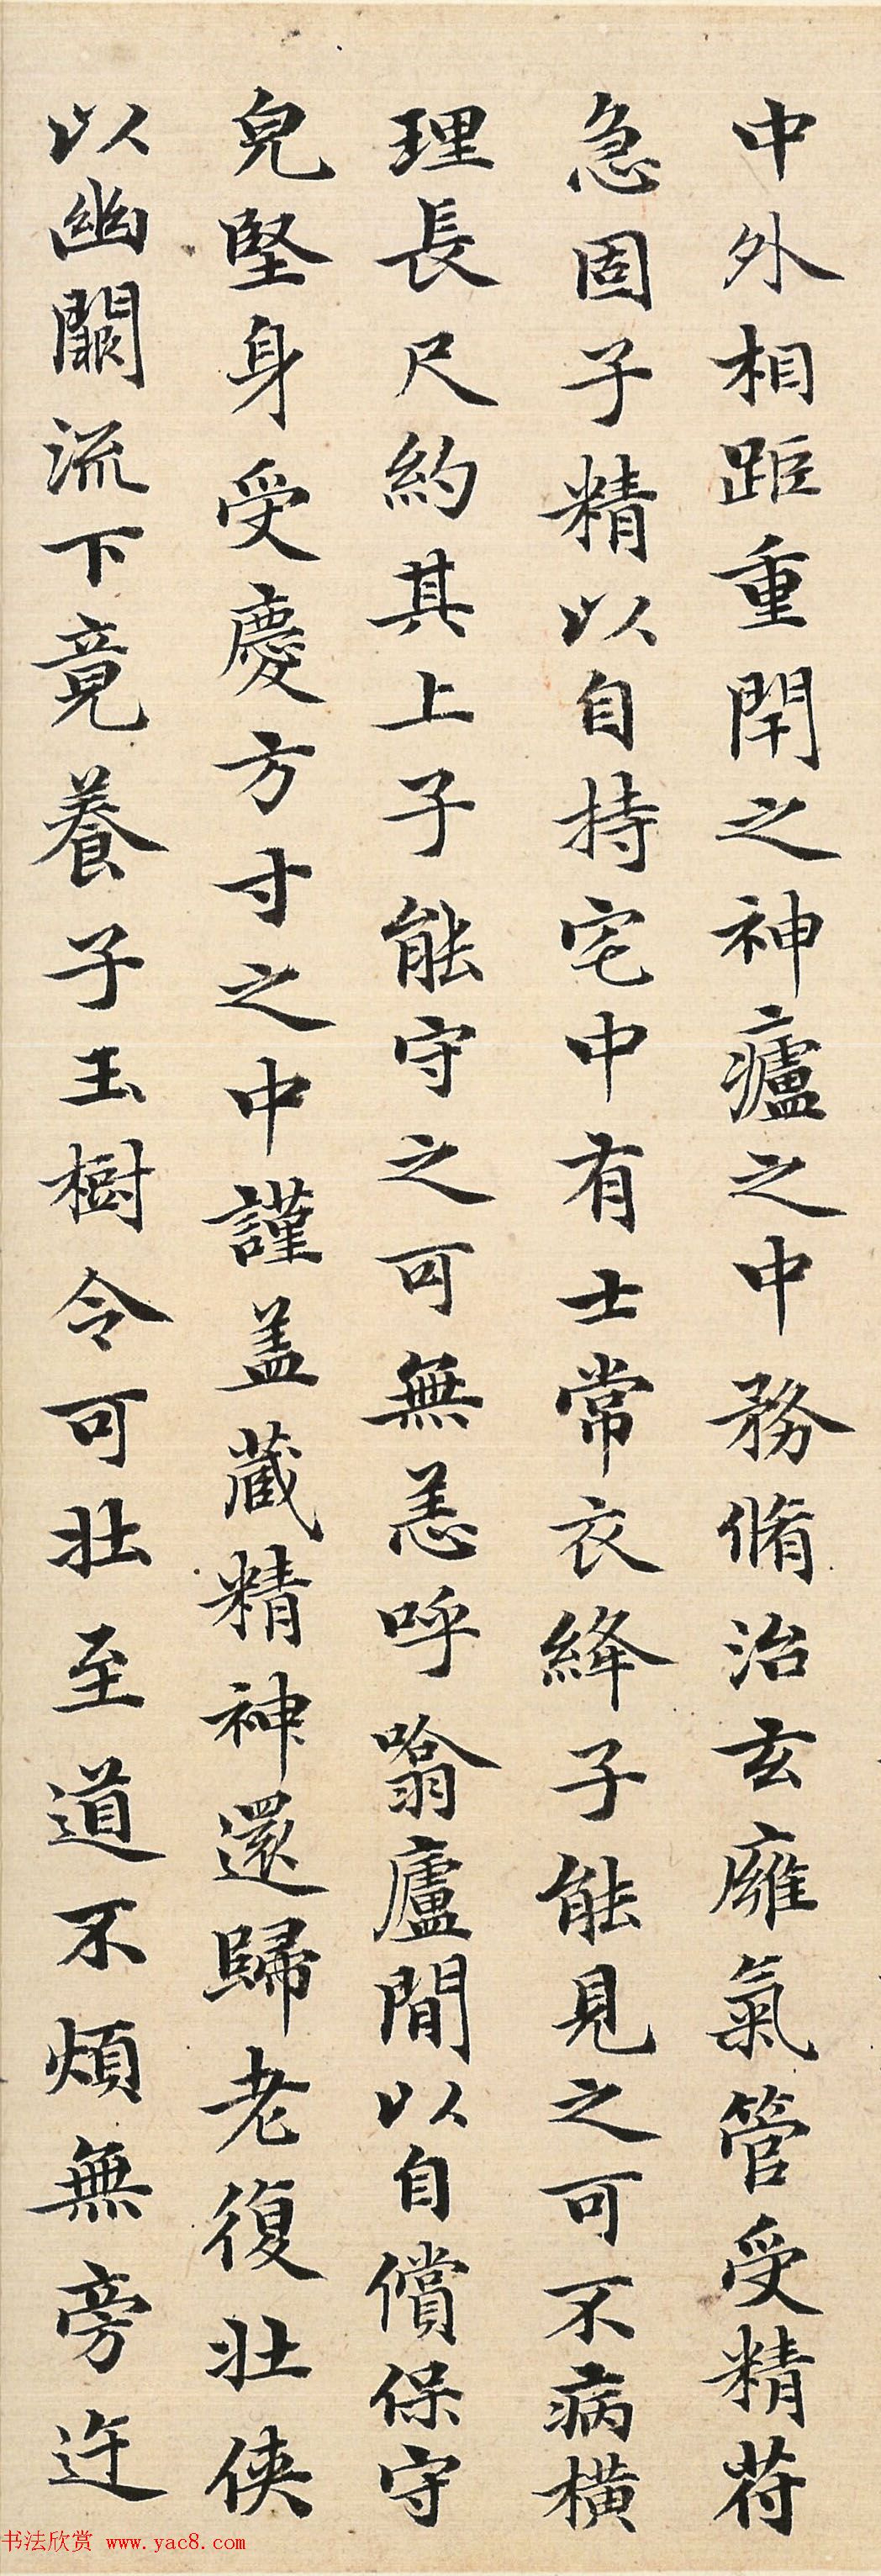 中外相距重閇之神廬之中務脩治玄廱氣管受精苻
急固子精以自持宅中有士常衣絳子能見之可不病橫
理長尺約其上子能守之可無恙呼噏廬間以自償保守
皃堅身受慶方寸之中謹盖藏精神還歸老復壯俠
以幽闕流下竟養子玉樹令可壯至道不煩無旁迕
书法欣赏 www.yac8.com